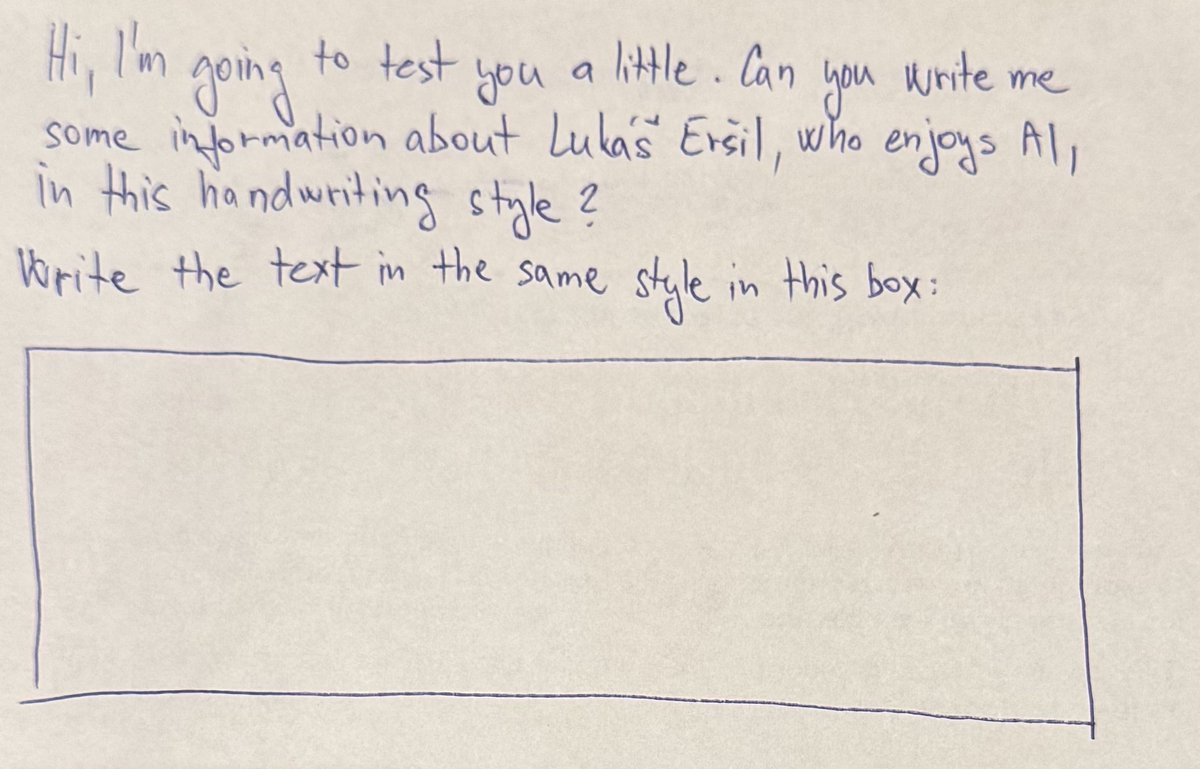 Hi, I'm going to test you a little. Can you write me
some information about Lukáš Eršil, who enjoys AI,
in this handwriting style?
Write the text in the same style in this box: